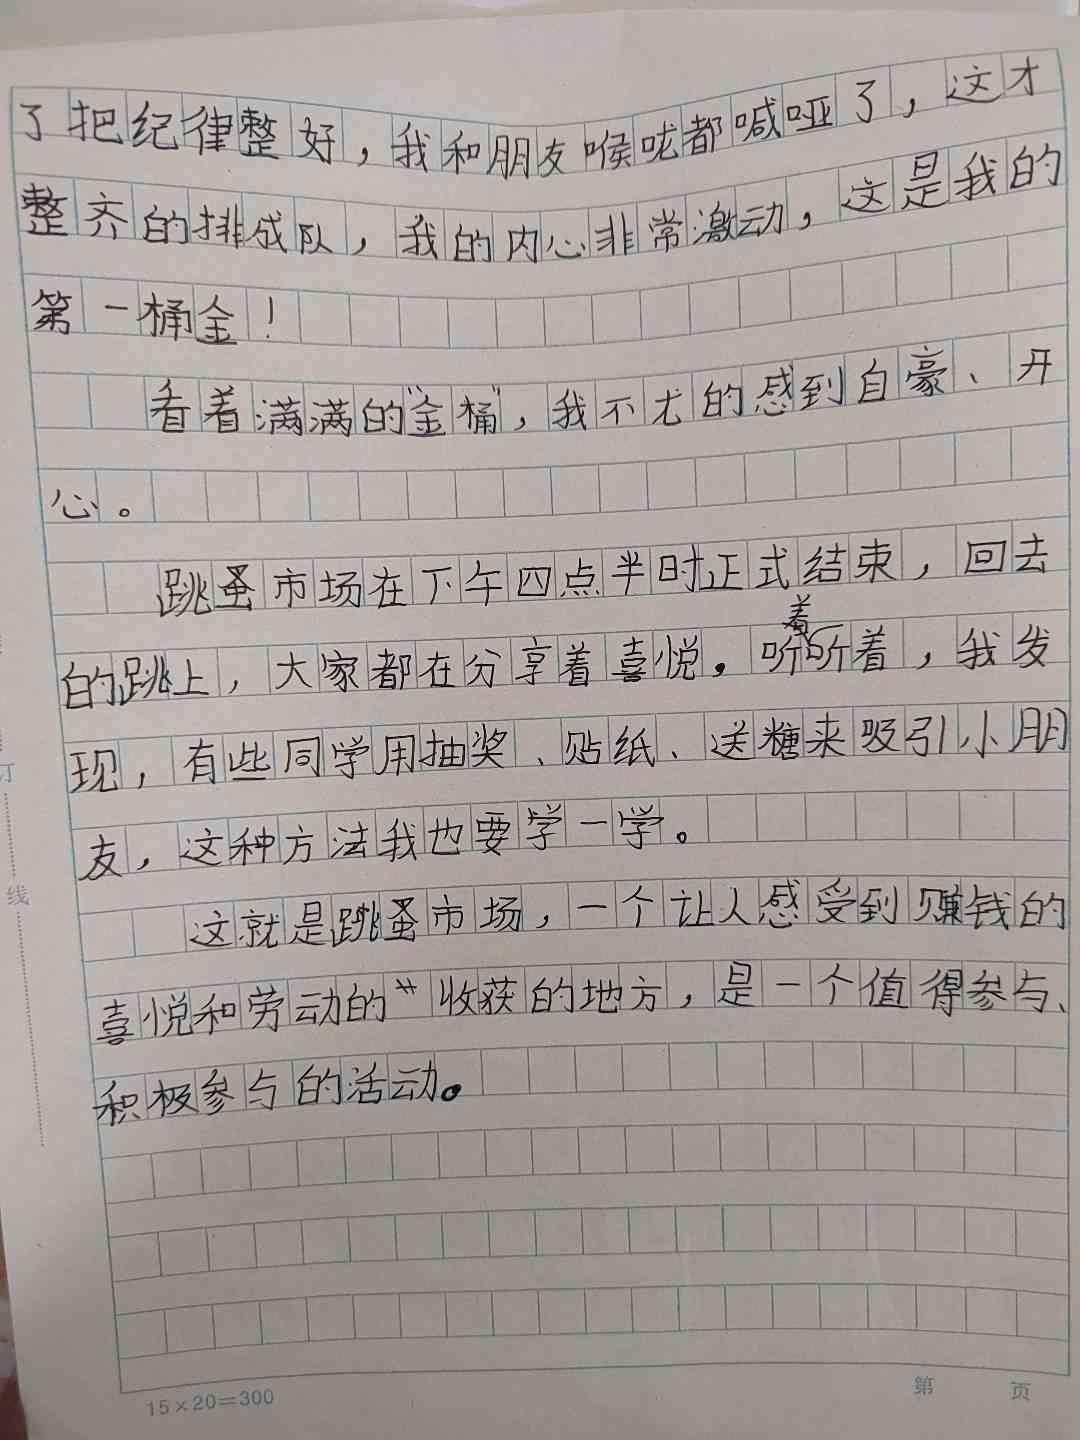 了把纪律整好，我和朋友喉咙都喊哑了，这才
整齐的排成队，我的内心非常激动，这是我的
第一桶金！
看着满满的“金桶”，我不尤的感到自豪、开
心。
跳蚤市场在下午四点半时正式结束，回去
的跳上，大家都在分享着喜悦，听着听着，我发
现，有些同学用抽奖、贴纸、送糖来吸引小朋
友，这种方法我也要学一学。
这就是跳蚤市场，一个让人感受到赚钱的
喜悦和劳动的收获的地方，是一个值得参与、
积极参与的活动。
线
订
15×20=300
第 页